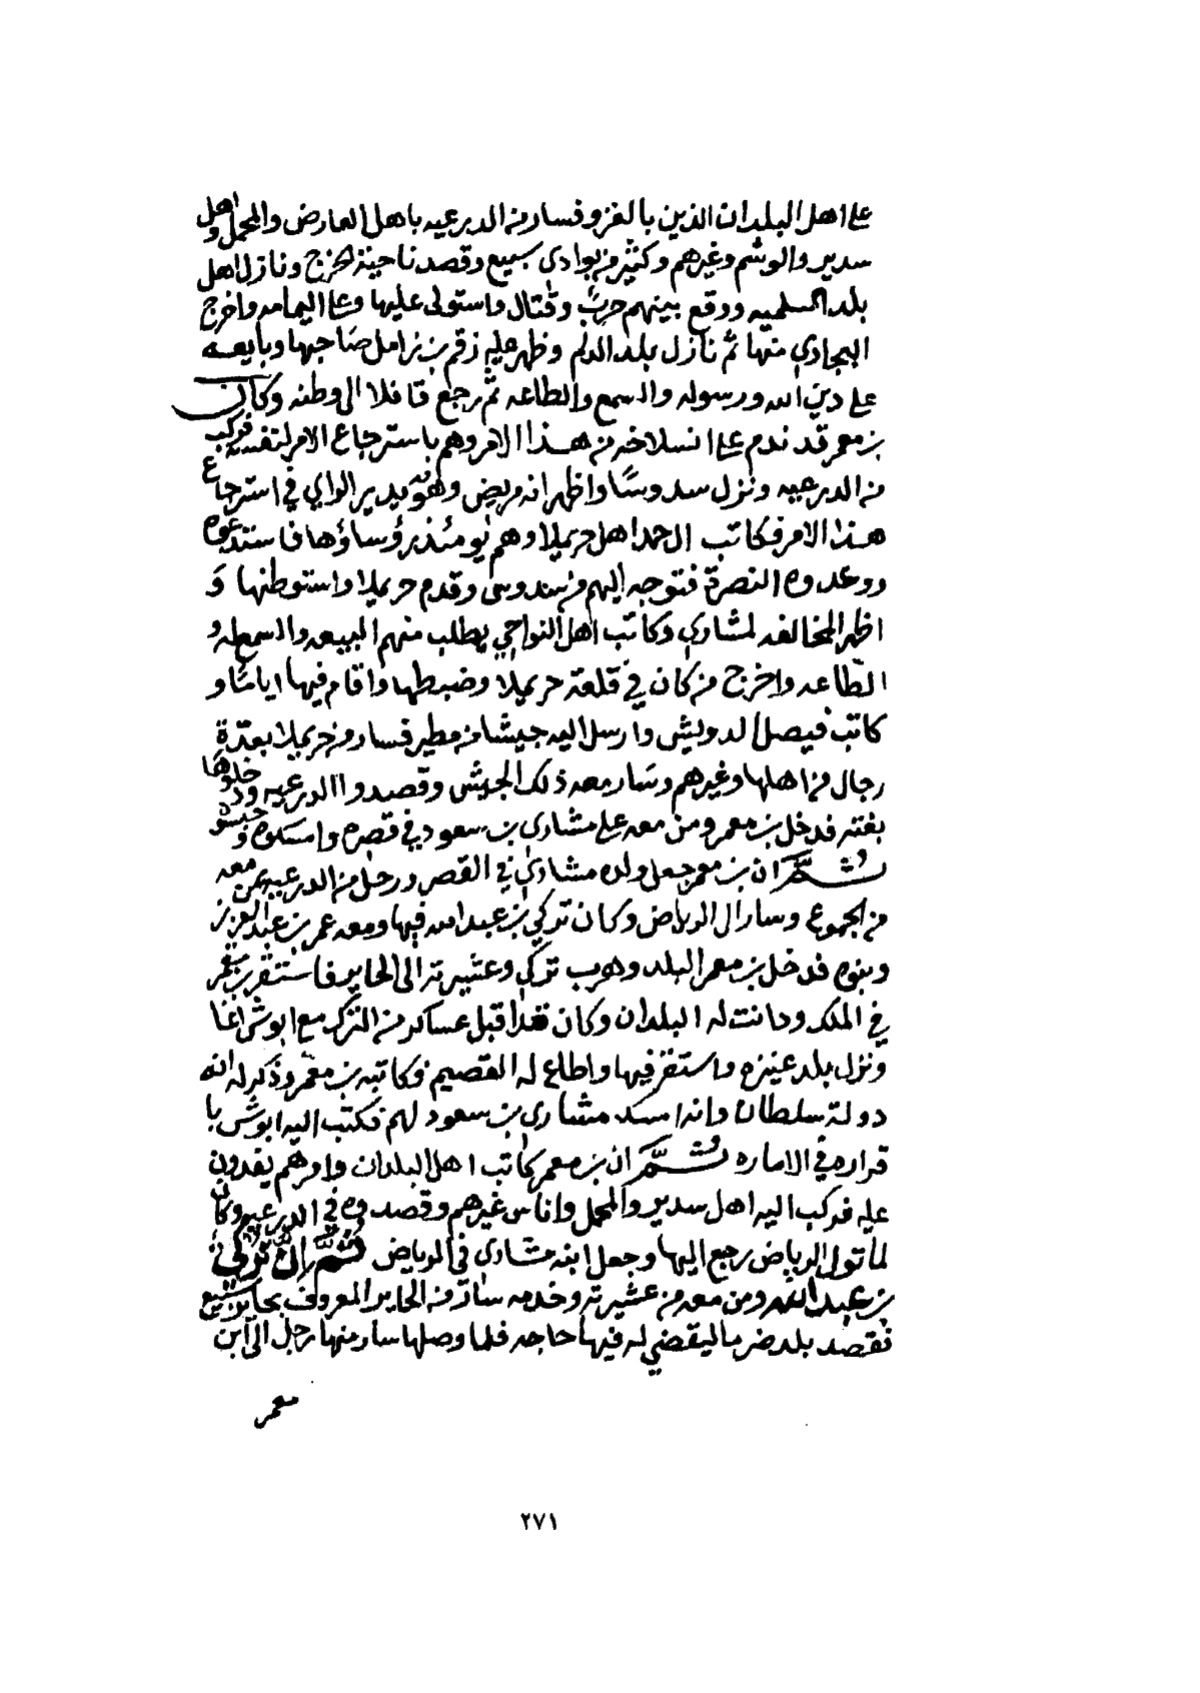 على اهل البلدان الذين بالغزو فسار من الدرعيه باهل العارض والمحمل واهل
سدير والوشم وغيرهم وكثير من بوادى سبيع وقصد ناحية الخرج ونازل اهل
بلد السلميه ووقع بينهم حرب وقتال واستولى عليها وعلى اليمامه واخرج
البجادي منها ثم نازل بلد الدلم وظهر عليه زقم بن زامل صاحبها وبايعه
على دين الله ورسوله والسمع والطاعه ثم رجع قافلا الى وطنه وكان
بن معمر قد ندم على انسلاخه من هذا الامر وهم باسترجاع الامر لنفسه فركب
من الدرعيه ونزل سدوسًا واظهر انه مريض وهو يدير الراي في استرجاع
هذا الامر فكاتب ال حمد اهل حريملا وهم يومئذ رؤساؤها فاستدعوه
ووعدوه النصرة فتوجه اليهم من سدوس وقدم حريملا واستوطنها و
اظهر المخالفه لمشاري وكاتب اهل النواحي يطلب منهم البيعه والسمع له و
الطاعه واخرج من كان في قلعة حريملا وضبطها واقام فيها ايامًا و
كاتب فيصل الدويش وارسل اليه جيشا من مطير فسار من حريملا بعدّة
رجال من اهلها وغيرهم وسار معه ذلك الجيش وقصدوا الدرعيه ودخلوها
بغته فدخل بن معمر ومن معه على مشارى بن سعود في قصره وامسكوه وحبسوه
ثم ان بن معمر جعل ولده مشاري في القصر ورحل من الدرعيه بمن معه
من الجموع وسار ال الرياض وكان تركي بن عبدالله فيها ومعه عمر بن عبدالعزيز
وبنوه فدخل بن معمر البلد وهرب تركي وعشيرته الى الحاير فاستقر بن معمر
في الملك ودانت له البلدان وكان قد اقبل عساكر من الترك مع ابوش اغا
ونزل بلد عنيزه واستقر فيها واطاع له القصيم فكاتبه بن معمر وذكر له انه
دولة سلطان وانه امسك مشارى بن سعود لهم فكتب اليه ابوش با
قراره في الاماره ثم ان بن معمر كاتب اهل البلدان وامرهم يفدون
عليه فركب اليه اهل سدير والمحمل واناس غيرهم وقصدوه في الدرعيه وكان
لما تولى الرياض رجع اليها وجعل ابنه مشارى في الرياض ثم ان تركي
بن عبدالله ومن معه من عشيرته وخدمه سار من الحاير المعروف بحاير سبيع
فقصد بلد ضرما ليقضي له فيها حاجه فلما وصلها سار منها رجل الى ابن
معمر
٢٧١